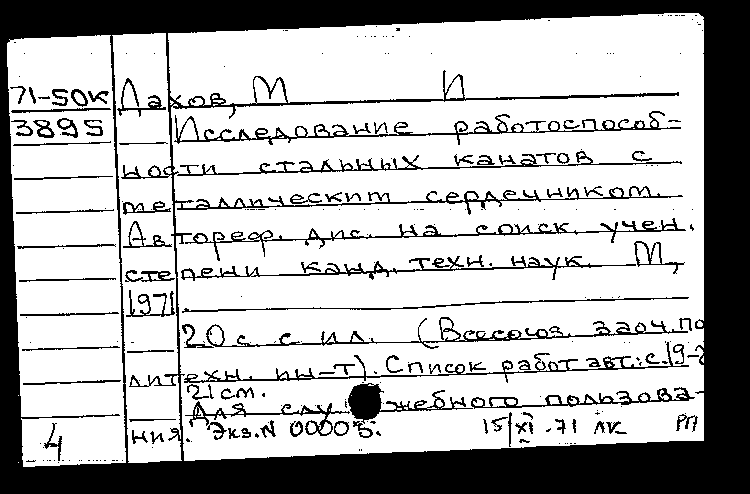 71-50к Дахов, М И
3895 Исследование работоспособ=
ности стальных канатов с
металлическим сердечником.
Автореф. дис. на соиск. учен.
степени канд. техн. наук. М,
1971.
20 с. с ил. (Всесоюз. заоч. по
литехн. ин-т). Список работ авт.: с. 19-2
21 см.
Для служебного пользова-
4 ния. Экз. N 00005. 15/XI -71 ЛК РП